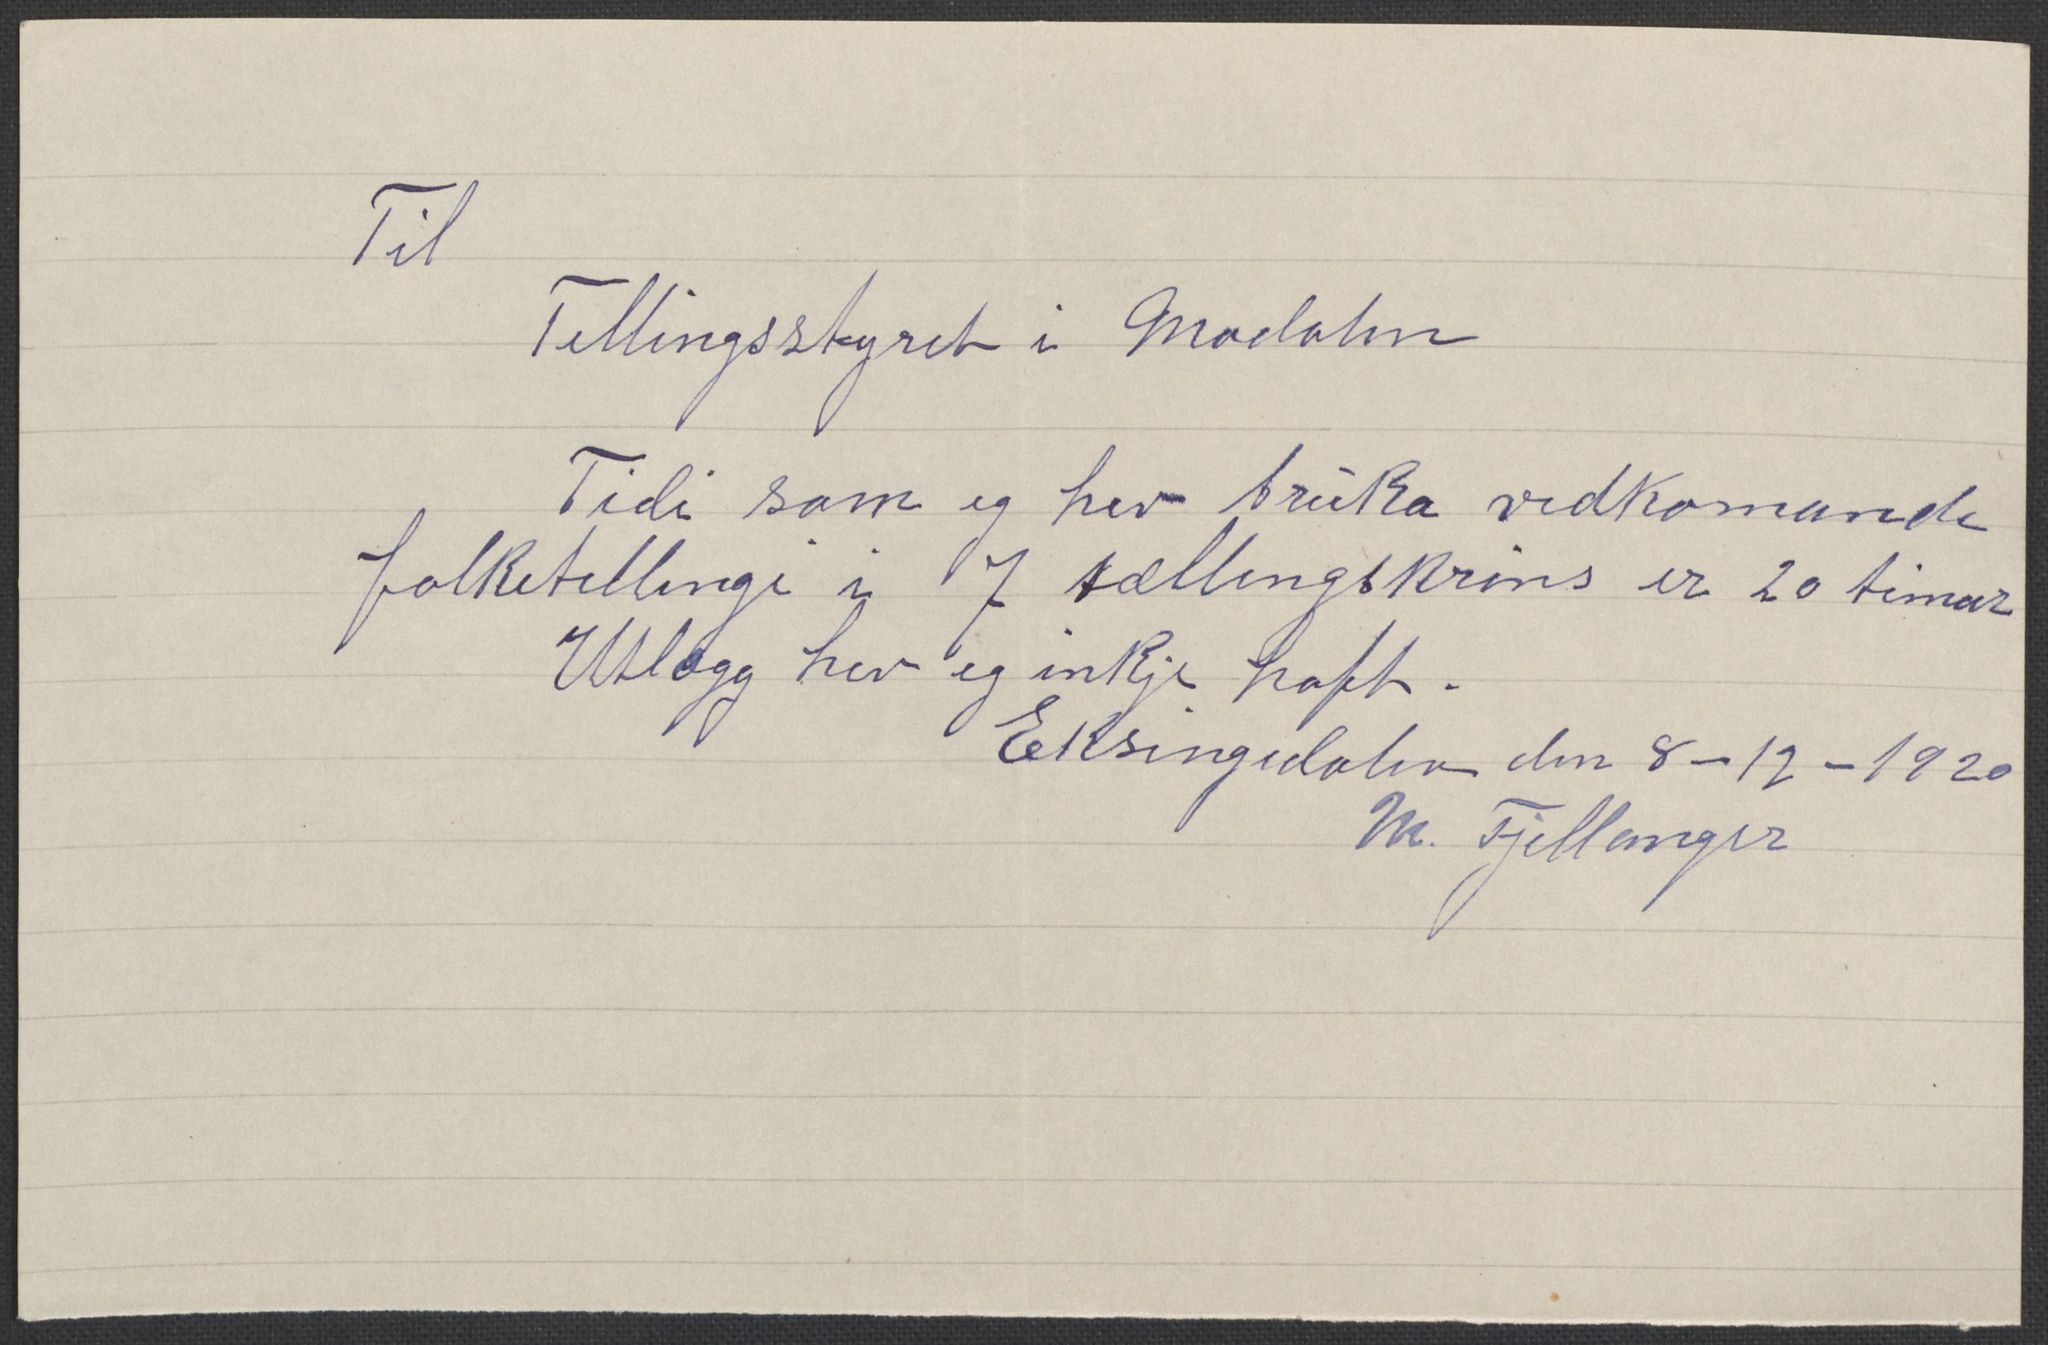 Til
Tellingsstyret i Modalen
Tidi som eg hev brúka vedkomande
folketellingi i 7 tællingskrins er 20 timar
Utlogg hev eg inkje haft.
Eksingedalen den 8-12-1920
M. Fjellanger